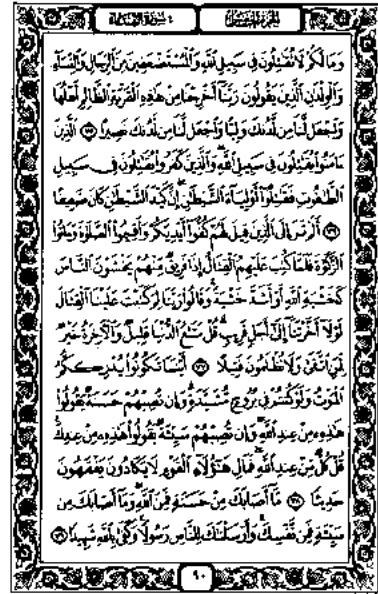 الجزء الخامس ٤ سورة النساء
وَمَا لَكُمْ لَا تُقَٰتِلُونَ فِى سَبِيلِ ٱللَّهِ وَٱلْمُسْتَضْعَفِينَ مِنَ ٱلرِّجَالِ وَٱلنِّسَآءِ
وَٱلْوِلْدَٰنِ ٱلَّذِينَ يَقُولُونَ رَبَّنَآ أَخْرِجْنَا مِنْ هَٰذِهِ ٱلْقَرْيَةِ ٱلظَّالِمِ أَهْلُهَا
وَٱجْعَل لَّنَا مِن لَّدُنكَ وَلِيًّا وَٱجْعَل لَّنَا مِن لَّدُنكَ نَصِيرًا ٧٥ ٱلَّذِينَ
ءَامَنُوا۟ يُقَٰتِلُونَ فِى سَبِيلِ ٱللَّهِ وَٱلَّذِينَ كَفَرُوا۟ يُقَٰتِلُونَ فِى سَبِيلِ
ٱلطَّٰغُوتِ فَقَٰتِلُوٓا۟ أَوْلِيَآءَ ٱلشَّيْطَٰنِ إِنَّ كَيْدَ ٱلشَّيْطَٰنِ كَانَ ضَعِيفًا
٧٦ أَلَمْ تَرَ إِلَى ٱلَّذِينَ قِيلَ لَهُمْ كُفُّوٓا۟ أَيْدِيَكُمْ وَأَقِيمُوا۟ ٱلصَّلَوٰةَ وَءَاتُوا۟
ٱلزَّكَوٰةَ فَلَمَّا كُتِبَ عَلَيْهِمُ ٱلْقِتَالُ إِذَا فَرِيقٌ مِّنْهُمْ يَخْشَوْنَ ٱلنَّاسَ
كَخَشْيَةِ ٱللَّهِ أَوْ أَشَدَّ خَشْيَةً وَقَالُوا۟ رَبَّنَا لِمَ كَتَبْتَ عَلَيْنَا ٱلْقِتَالَ
لَوْلَآ أَخَّرْتَنَآ إِلَىٰٓ أَجَلٍ قَرِيبٍ قُلْ مَتَٰعُ ٱلدُّنْيَا قَلِيلٌ وَٱلْءَاخِرَةُ خَيْرٌ
لِّمَنِ ٱتَّقَىٰ وَلَا تُظْلَمُونَ فَتِيلًا ٧٧ أَيْنَمَا تَكُونُوا۟ يُدْرِككُّمُ
ٱلْمَوْتُ وَلَوْ كُنتُمْ فِى بُرُوجٍ مُّشَيَّدَةٍ وَإِن تُصِبْهُمْ حَسَنَةٌ يَقُولُوا۟
هَٰذِهِۦ مِنْ عِندِ ٱللَّهِ وَإِن تُصِبْهُمْ سَيِّئَةٌ يَقُولُوا۟ هَٰذِهِۦ مِنْ عِندِكَ
قُلْ كُلٌّ مِّنْ عِندِ ٱللَّهِ فَمَالِ هَٰٓؤُلَآءِ ٱلْقَوْمِ لَا يَكَادُونَ يَفْقَهُونَ
حَدِيثًا ٧٨ مَّآ أَصَابَكَ مِنْ حَسَنَةٍ فَمِنَ ٱللَّهِ وَمَآ أَصَابَكَ مِن
سَيِّئَةٍ فَمِن نَّفْسِكَ وَأَرْسَلْنَٰكَ لِلنَّاسِ رَسُولًا وَكَفَىٰ بِٱللَّهِ شَهِيدًا ٧٩
٩٠